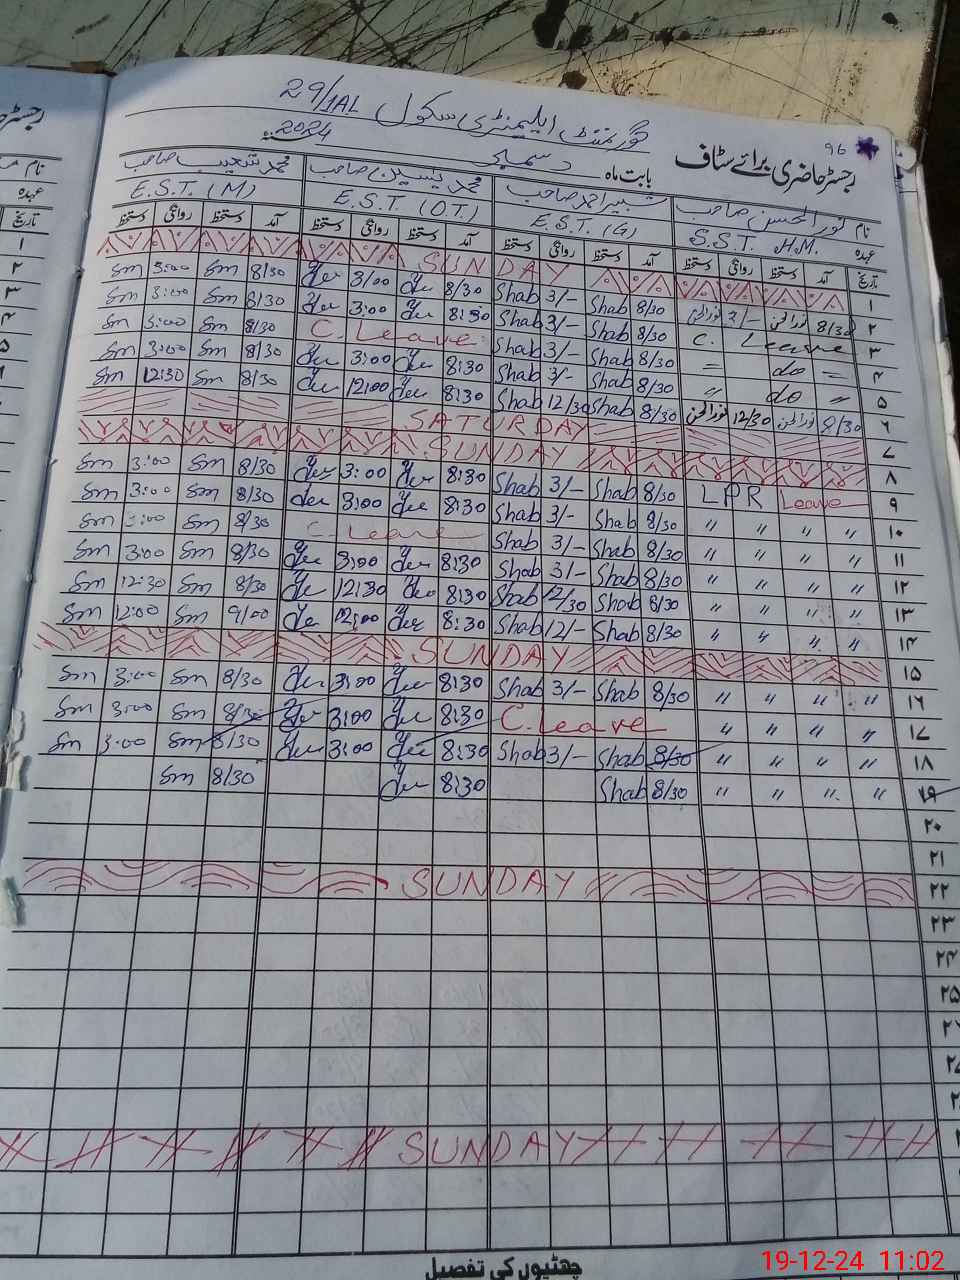 ۹۶
گورنمنٹ ایلیمنٹری سکول 29/1AL
رجسٹر حاضری برائے سٹاف بابت ماہ دسمبر 2024
نام نورالحسن صاحب شبیر احمد صاحب محمد یٰسین صاحب محمد شعیب صاحب
عہدہ S.S.T. H.M. E.S.T. (G) E.S.T. (O.T.) E.S.T. (M)
تاریخ آمد دستخط روانگی دستخط آمد دستخط روانگی دستخط آمد دستخط روانگی دستخط آمد دستخط روانگی دستخط
۱ SUNDAY
۲ 8/30 نورالحسن نورالحسن 8/30 Shab 3/- Shab 8/30 8/30 Sm 3:00 Sm
۳ C. Leave 8/30 Shab 3/- Shab 8:30 3:00 8/30 Sm 3:00 Sm
۴ = do = 8/30 Shab 3/- Shab C. Leave 8/30 Sm 3:00 Sm
۵ " do " 8/30 Shab 3/- Shab 8:30 3:00 8/30 Sm 3:00 Sm
۶ 8/30 نورالحسن 12/30 نورالحسن 8/30 Shab 12/30 Shab 8:30 12:00 8/30 Sm 12:30 Sm
۷ SATURDAY
۸ SUNDAY
۹ LPR Leave 8/30 Shab 3/- Shab 8:30 3:00 8/30 Sm 3:00 Sm
۱۰ " " " " 8/30 Shab 3/- Shab 8:30 3:00 8/30 Sm 3:00 Sm
۱۱ " " " " 8/30 Shab 3/- Shab C. Leave 8/30 Sm 3:00 Sm
۱۲ " " " " 8/30 Shab 3/- Shab 8:30 3:00 8/30 Sm 3:00 Sm
۱۳ " " " " 8/30 Shab 12/30 Shab 8:30 12:30 8/30 Sm 12:30 Sm
۱۴ " " " " 8/30 Shab 12/- Shab 8:30 12:00 9/00 Sm 12:00 Sm
۱۵ SUNDAY
۱۶ " " " " 8/30 Shab 3/- Shab 8:30 3:00 8/30 Sm 3:00 Sm
۱۷ " " " " C. Leave 8:30 3:00 8/30 Sm 3:00 Sm
۱۸ " " " " 8/30 Shab 3/- Shab 8:30 3:00 8/30 Sm 3:00 Sm
۱۹ " " " " 8/30 Shab 8:30 8/30 Sm
۲۰
۲۱
۲۲ SUNDAY
۲۳
۲۴
۲۵
SUNDAY
چھٹیوں کی تفصیل
19-12-24 11:02